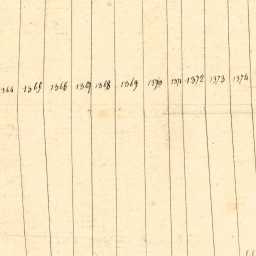 1365 1366 1367 1368 1369 1370 1371 1372 1373 1374